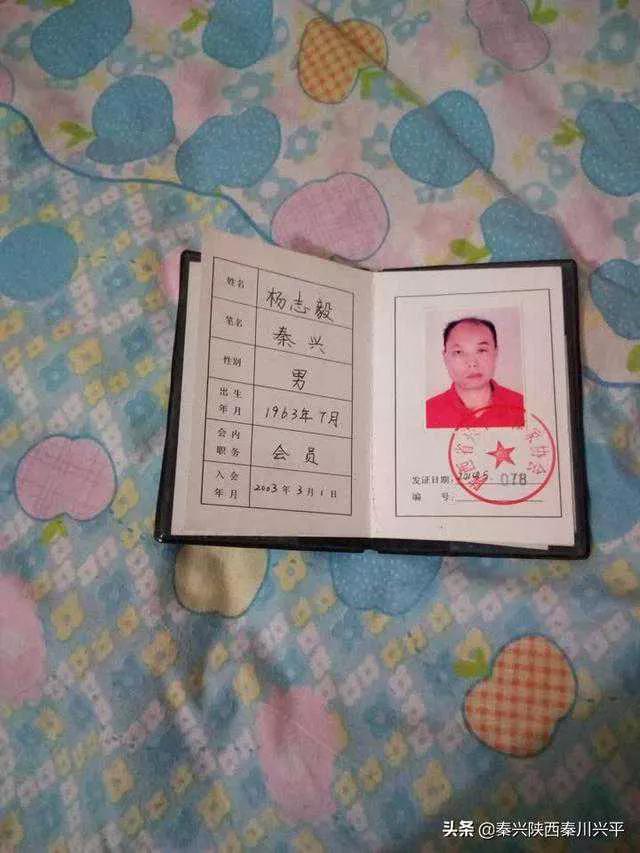 姓名 杨志毅
笔名 秦兴
性别 男
出生年月 1963年7月
会内职务 会员
入会年月 2003年3月1日
发证日期：
078
编号：
家协会
头条 @秦兴陕西秦川兴平